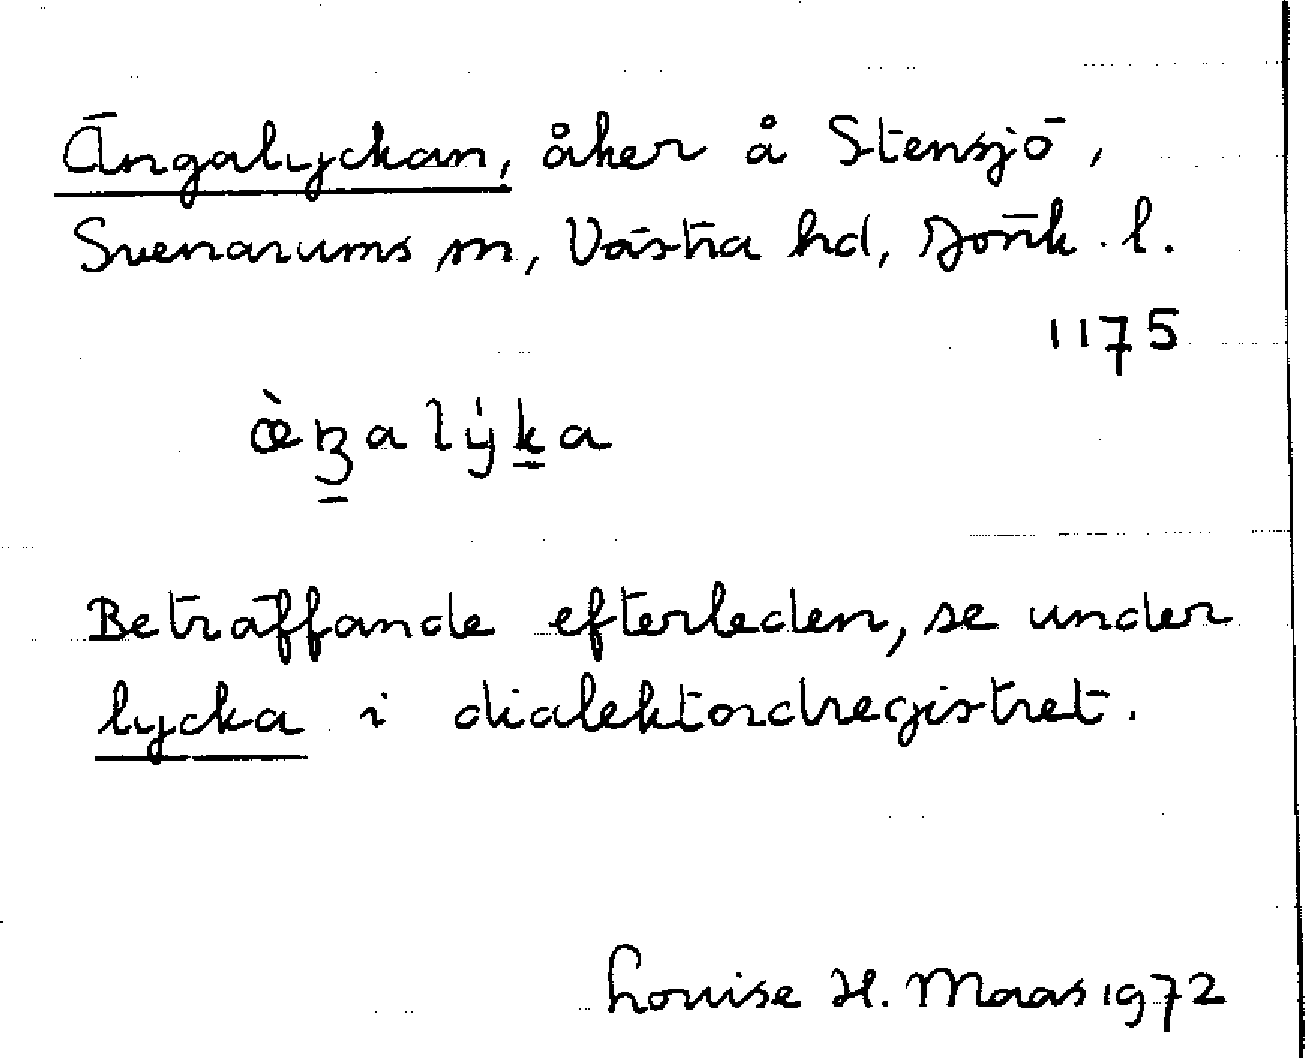 Ängalyckan, åker å Stensjö,
Svenarums sn, Västra hd, Jönk. l.
1175
Beträffande efterleden, se under
lycka i dialektordregistret.
Louise H. Maas 1972